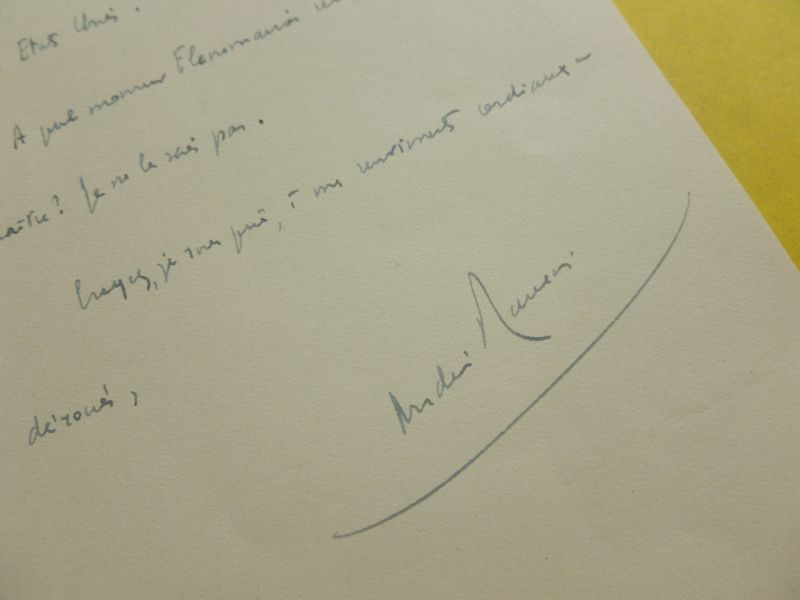 Etats Unis.
A quel moment Flammarion
naître? Je ne le sais pas.
Croyez, je vous prie, à mes sentiments cordiaux -
dévoués,
André Maurois